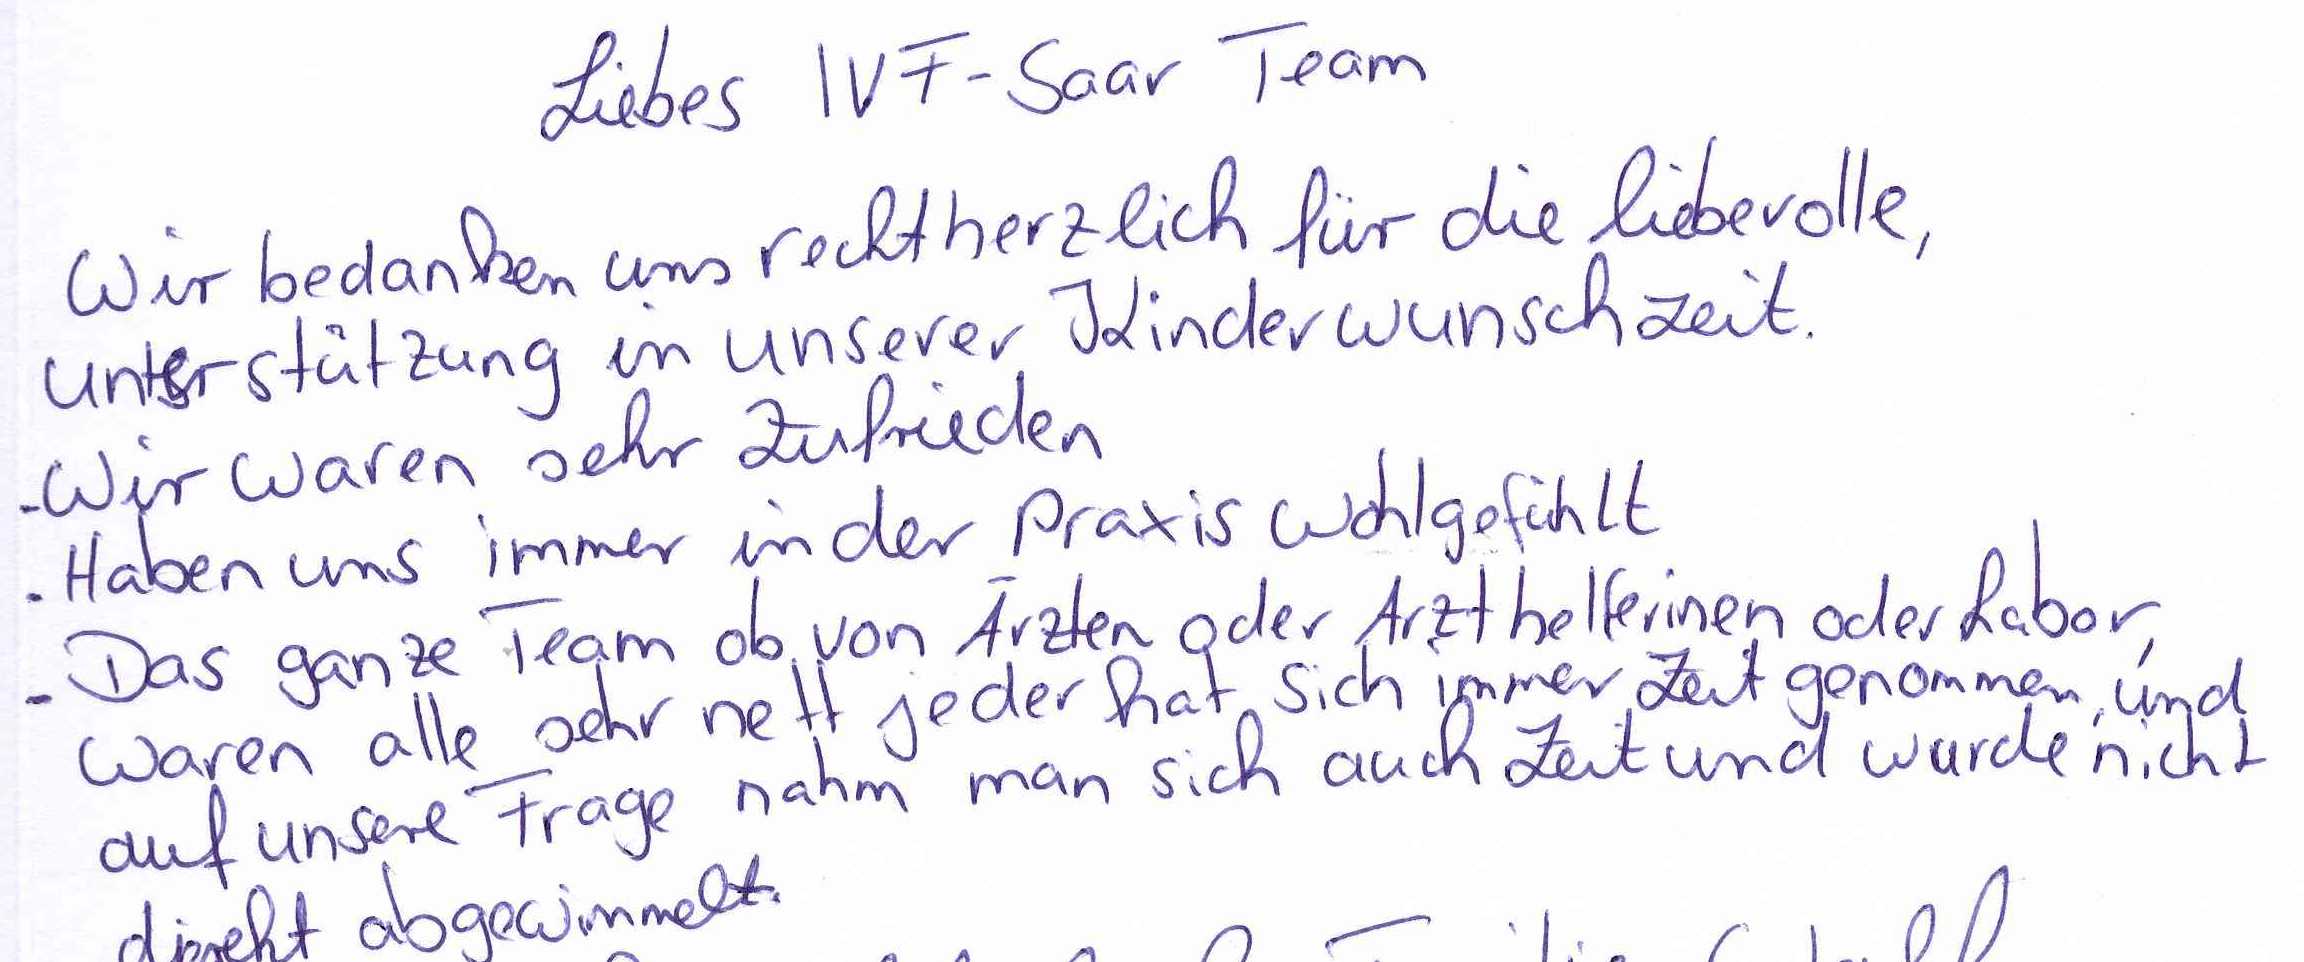 Liebes IVF-Saar Team
Wir bedanken uns rechtherzlich für die liebevolle,
unterstützung in unserer Kinderwunschzeit.
-Wir waren sehr Zufrieden
-Haben uns immer in der Praxis wohlgefühlt
-Das ganze Team ob von Ärzten oder Arzthelferinen oder Labor,
waren alle sehr nett jeder hat sich immer Zeit genommen, und
auf unsere Frage nahm man sich auch Zeit und wurde nicht
direkt abgewimmelt.